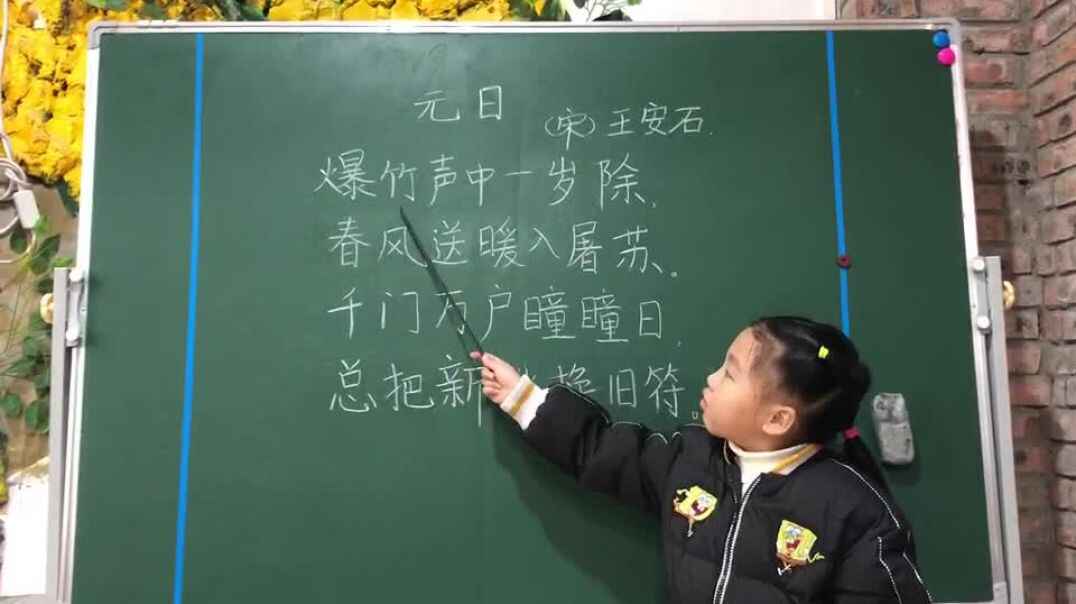 元日
(宋)王安石.
爆竹声中一岁除,
春风送暖入屠苏。
千门万户瞳瞳日,
总把新换旧符。